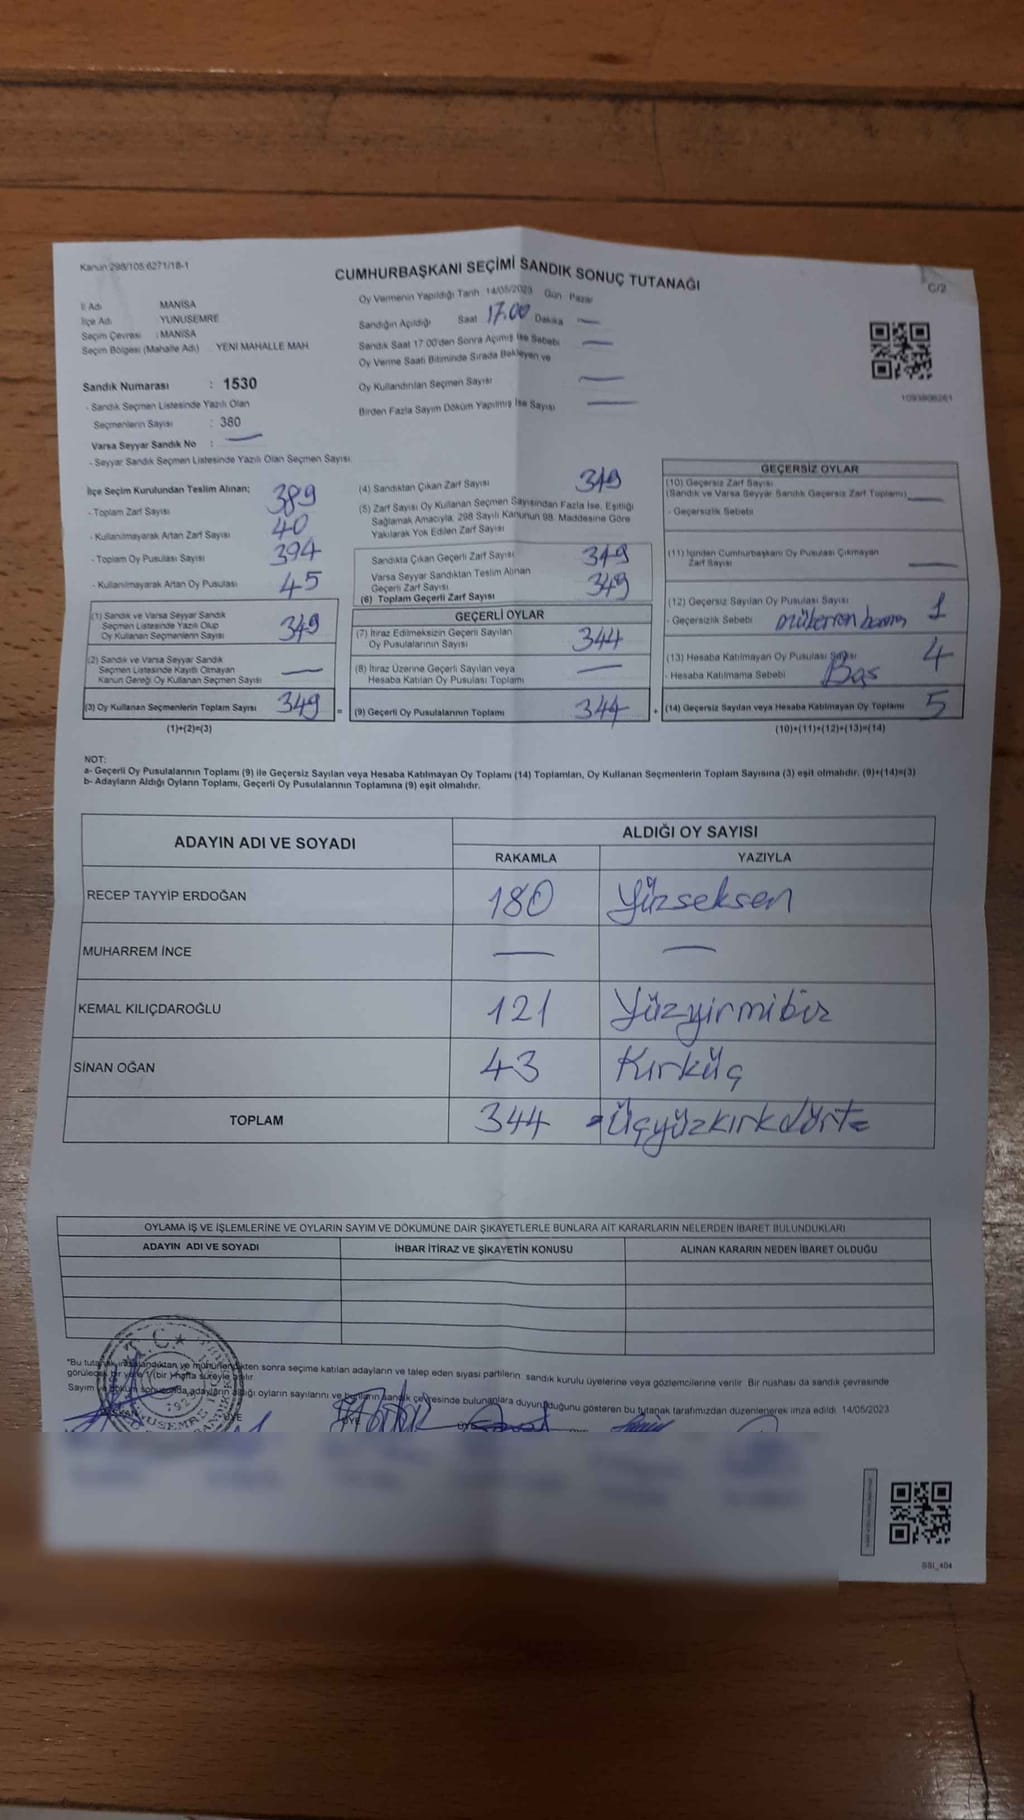 Kanun 298/105-6271/18-1
CUMHURBAŞKANI SEÇİMİ SANDIK SONUÇ TUTANAĞI
C/2
İl Adı MANİSA
İlçe Adı YUNUSEMRE
Seçim Çevresi : MANİSA
Seçim Bölgesi (Mahalle Adı) YENİ MAHALLE MAH
Sandık Numarası : 1530
- Sandık Seçmen Listesinde Yazılı Olan
Seçmenlerin Sayısı : 380
Varsa Seyyar Sandık No : —
- Seyyar Sandık Seçmen Listesinde Yazılı Olan Seçmen Sayısı
Oy Vermenin Yapıldığı Tarih 14/05/2023 Gün Pazar
Sandığın Açıldığı Saat 17.00 Dakika —
Sandık Saat 17:00'den Sonra Açılmış İse Sebebi —
Oy Verme Saati Bitiminde Sırada Bekleyen ve
Oy Kullandırılan Seçmen Sayısı —
Birden Fazla Sayım Döküm Yapılmış İse Sayısı —
1093808261
İlçe Seçim Kurulundan Teslim Alınan;
- Toplam Zarf Sayısı 389
- Kullanılmayarak Artan Zarf Sayısı 40
- Toplam Oy Pusulası Sayısı 394
- Kullanılmayarak Artan Oy Pusulası 45
(1) Sandık ve Varsa Seyyar Sandık
Seçmen Listesinde Yazılı Olup
Oy Kullanan Seçmenlerin Sayısı 349
(2) Sandık ve Varsa Seyyar Sandık
Seçmen Listesinde Kayıtlı Olmayan
Kanun Gereği Oy Kullanan Seçmen Sayısı —
(3) Oy Kullanan Seçmenlerin Toplam Sayısı 349 =
(1)+(2)=(3)
(4) Sandıktan Çıkan Zarf Sayısı 349
(5) Zarf Sayısı Oy Kullanan Seçmen Sayısından Fazla İse, Eşitliği
Sağlamak Amacıyla, 298 Sayılı Kanunun 98. Maddesine Göre
Yakılarak Yok Edilen Zarf Sayısı
Sandıkta Çıkan Geçerli Zarf Sayısı 349
Varsa Seyyar Sandıktan Teslim Alınan
Geçerli Zarf Sayısı
(6) Toplam Geçerli Zarf Sayısı 349
GEÇERLİ OYLAR
(7) İtiraz Edilmeksizin Geçerli Sayılan
Oy Pusulalarının Sayısı 344
(8) İtiraz Üzerine Geçerli Sayılan veya
Hesaba Katılan Oy Pusulası Toplamı —
(9) Geçerli Oy Pusulalarının Toplamı 344 +
GEÇERSİZ OYLAR
(10) Geçersiz Zarf Sayısı
(Sandık ve Varsa Seyyar Sandık Geçersiz Zarf Toplamı) —
- Geçersizlik Sebebi
(11) İçinden Cumhurbaşkanı Oy Pusulası Çıkmayan
Zarf Sayısı —
(12) Geçersiz Sayılan Oy Pusulası Sayısı 1
- Geçersizlik Sebebi
(13) Hesaba Katılmayan Oy Pusulası Sayısı 4
- Hesaba Katılmama Sebebi Boş
(14) Geçersiz Sayılan veya Hesaba Katılmayan Oy Toplamı 5
(10)+(11)+(12)+(13)=(14)
NOT:
a- Geçerli Oy Pusulalarının Toplamı (9) ile Geçersiz Sayılan veya Hesaba Katılmayan Oy Toplamı (14) Toplamları, Oy Kullanan Seçmenlerin Toplam Sayısına (3) eşit olmalıdır. (9)+(14)=(3)
b- Adayların Aldığı Oyların Toplamı, Geçerli Oy Pusulalarının Toplamına (9) eşit olmalıdır.
ADAYIN ADI VE SOYADI ALDIĞI OY SAYISI
RAKAMLA YAZIYLA
RECEP TAYYİP ERDOĞAN 180 Yüzseksen
MUHARREM İNCE — —
KEMAL KILIÇDAROĞLU 121 Yüzyirmibir
SİNAN OĞAN 43 Kırküç
TOPLAM 344 =Üçyüzkırkdört=
OYLAMA İŞ VE İŞLEMLERİNE VE OYLARIN SAYIM VE DÖKÜMÜNE DAİR ŞİKAYETLERLE BUNLARA AİT KARARLARIN NELERDEN İBARET BULUNDUKLARI
ADAYIN ADI VE SOYADI İHBAR İTİRAZ VE ŞİKAYETİN KONUSU ALINAN KARARIN NEDEN İBARET OLDUĞU
"Bu tutanak imzalandıktan ve mühürlendikten sonra seçime katılan adayların ve talep eden siyasi partilerin sandık kurulu üyelerine veya gözlemcilerine verilir. Bir nüshası da sandık çevresinde
görülecek bir yere 1 (bir) hafta süreyle asılır.
Sayım ve döküm sonucunda, adayların aldığı oyların sayılarını ve bunların sandık çevresinde bulunanlara duyurulduğunu gösteren bu tutanak tarafımızdan düzenlenerek imza edildi. 14/05/2023
BAŞKAN ÜYE ÜYE
T.C.
SSI_404